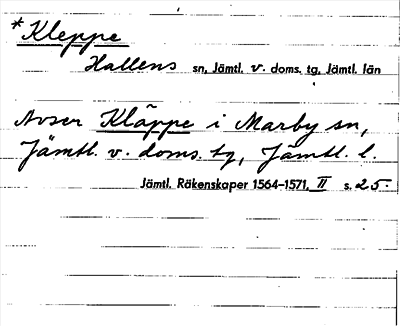 *Kleppe
Hallens sn, Jämtl. v. doms. tg, Jämtl. län
Avser Kläppe i Marby sn,
Jämtl. v. doms. tg, Jämtl. l.
Jämtl. Räkenskaper 1564–1571, II s. 25.